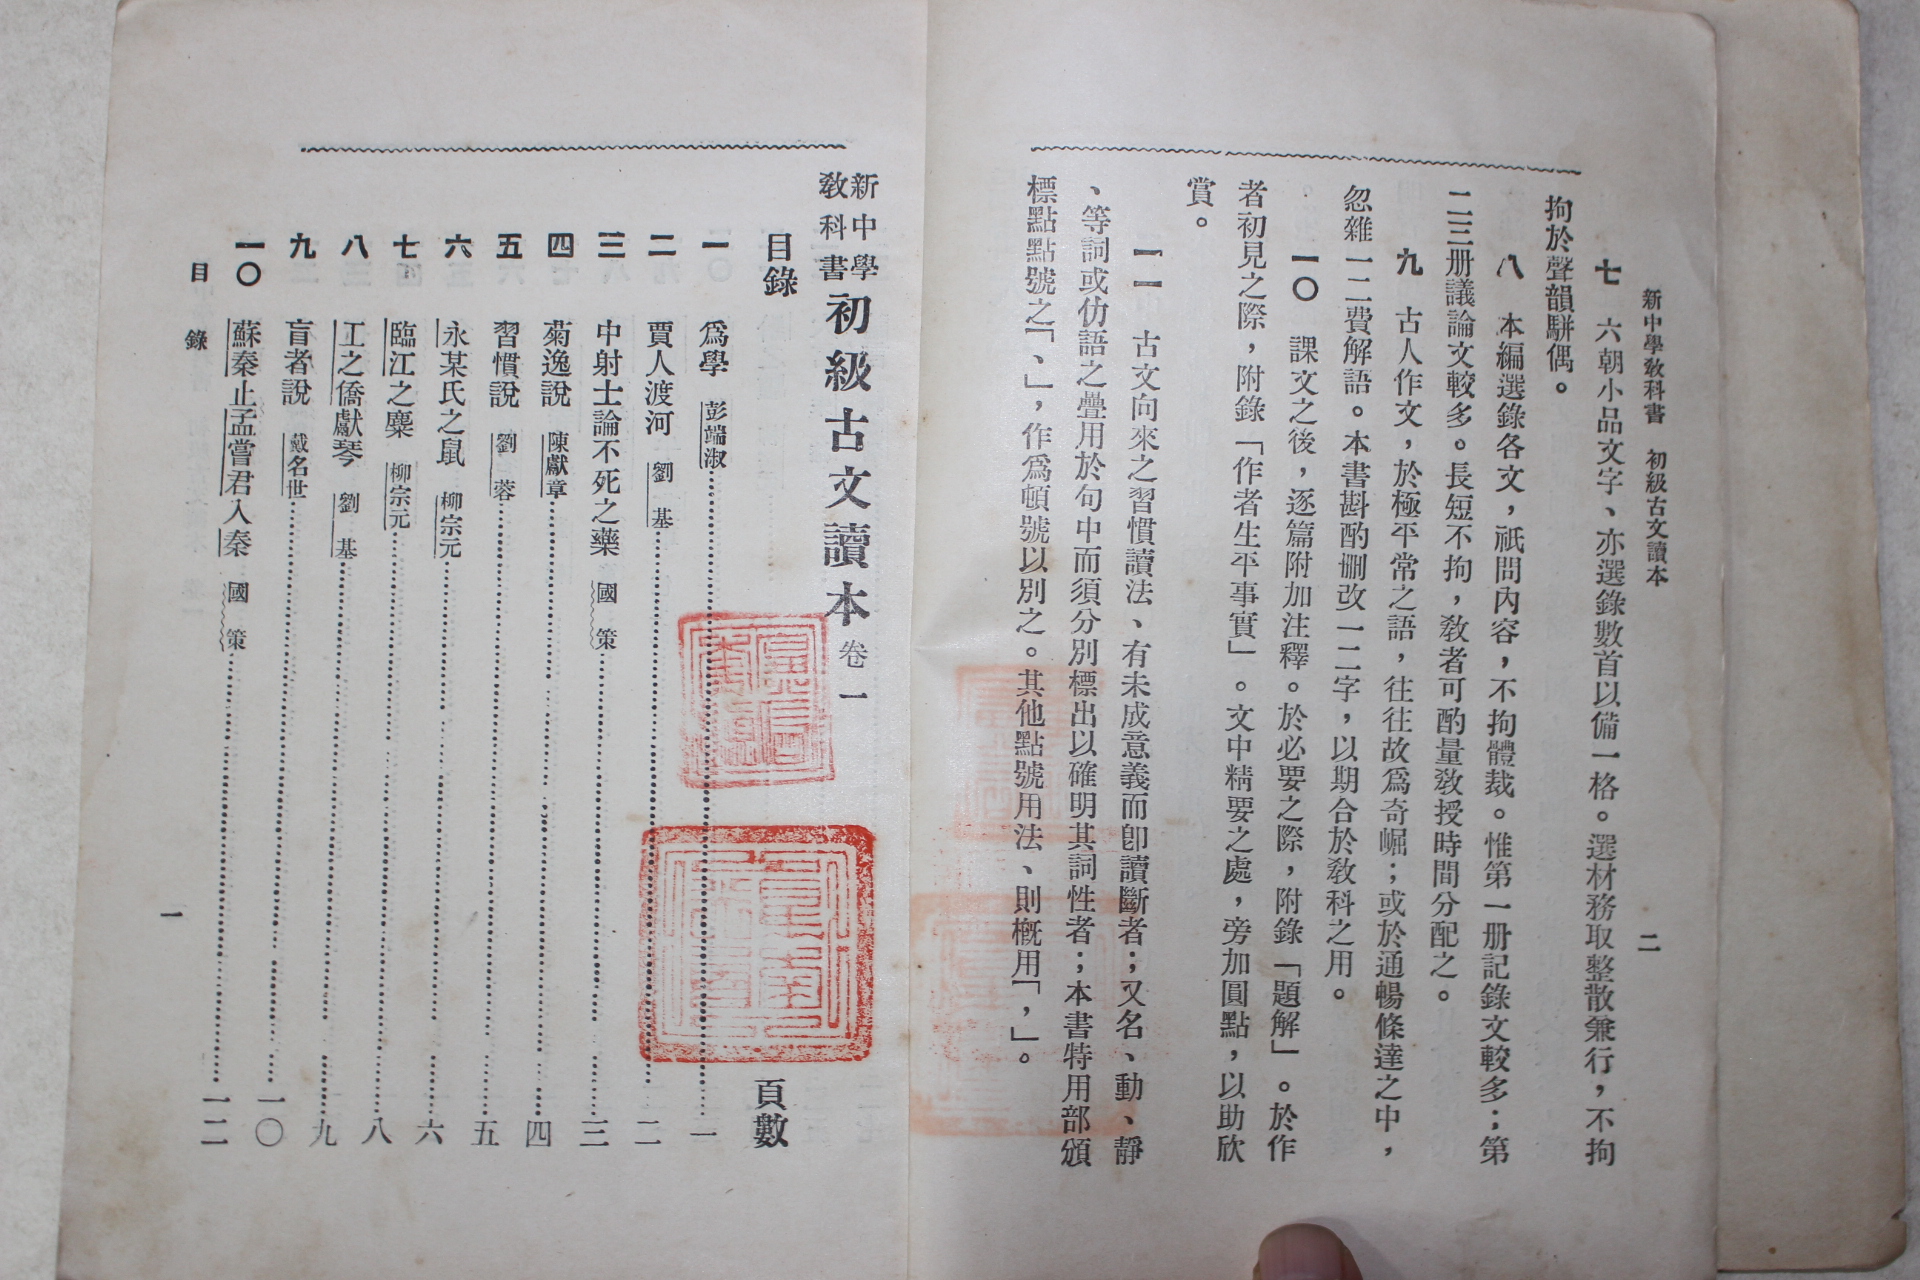 新中學敎科書　初級古文讀本　二
七　六朝小品文字、亦選錄數首以備一格。選材務取整散兼行，不拘
拘於聲韻駢偶。
八　本編選錄各文，祇問內容，不拘體裁。惟第一册記錄文較多；第
二三册議論文較多。長短不拘，敎者可酌量敎授時間分配之。
九　古人作文，於極平常之語，往往故爲奇崛；或於通暢條達之中，
忽雜一二費解語。本書斟酌刪改一二字，以期合於敎科之用。
一〇　課文之後，逐篇附加注釋。於必要之際，附錄「題解」。於作
者初見之際，附錄「作者生平事實」。文中精要之處，旁加圓點，以助欣
賞。
一一　古文向來之習慣讀法、有未成意義而卽讀斷者；又名、動、靜
、等詞或仂語之疊用於句中而須分別標出以確明其詞性者；本書特用部頒
標點點號之「、」，作爲頓號以別之。其他點號用法、則槪用「，」。
新中學敎科書初級古文讀本卷一
目錄　頁數
一　爲學　彭端淑……一
二　賈人渡河　劉基……二
三　中射士論不死之藥　國策……三
四　菊逸說　陳獻章……四
五　習慣說　劉蓉……五
六　永某氏之鼠　柳宗元……六
七　臨江之麋　柳宗元……八
八　工之僑獻琴　劉基……九
九　盲者說　戴名世……一〇
一〇　蘇秦止孟嘗君入秦　國策……一二
目錄　一